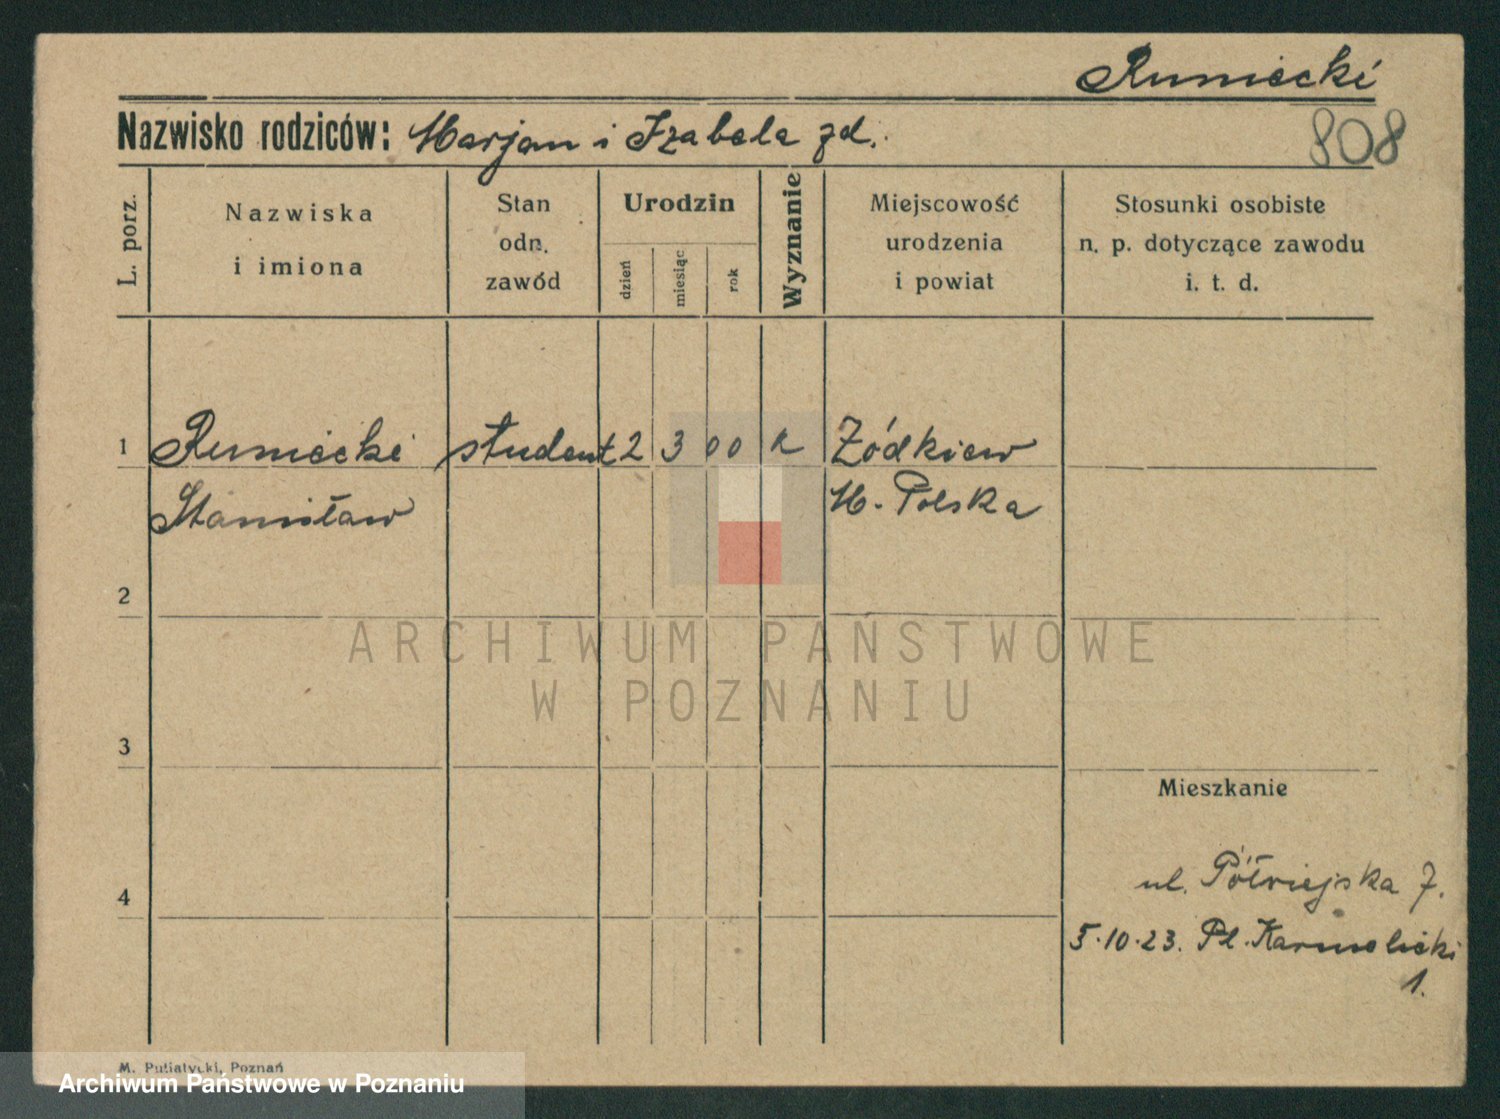 Rumiecki
808
Nazwisko rodziców: Marjan i Izabela zd.
L. porz.
Nazwiska
i imiona
Stan
odn.
zawód
Urodzin
dzień
miesiąc
rok
Wyznanie
Miejscowość
urodzenia
i powiat
Stosunki osobiste
n. p. dotyczące zawodu
i. t. d.
1 Rumiecki student 2 3 00 k Żódkiew
Stanisław M. Polska
2
ARCHIWUM PAŃSTWOWE
W POZNANIU
3
Mieszkanie
4
ul. Półwiejska 7.
5.10.23. Pl. Karmelicki
1.
M. Putiatycki, Poznań
Archiwum Państwowe w Poznaniu